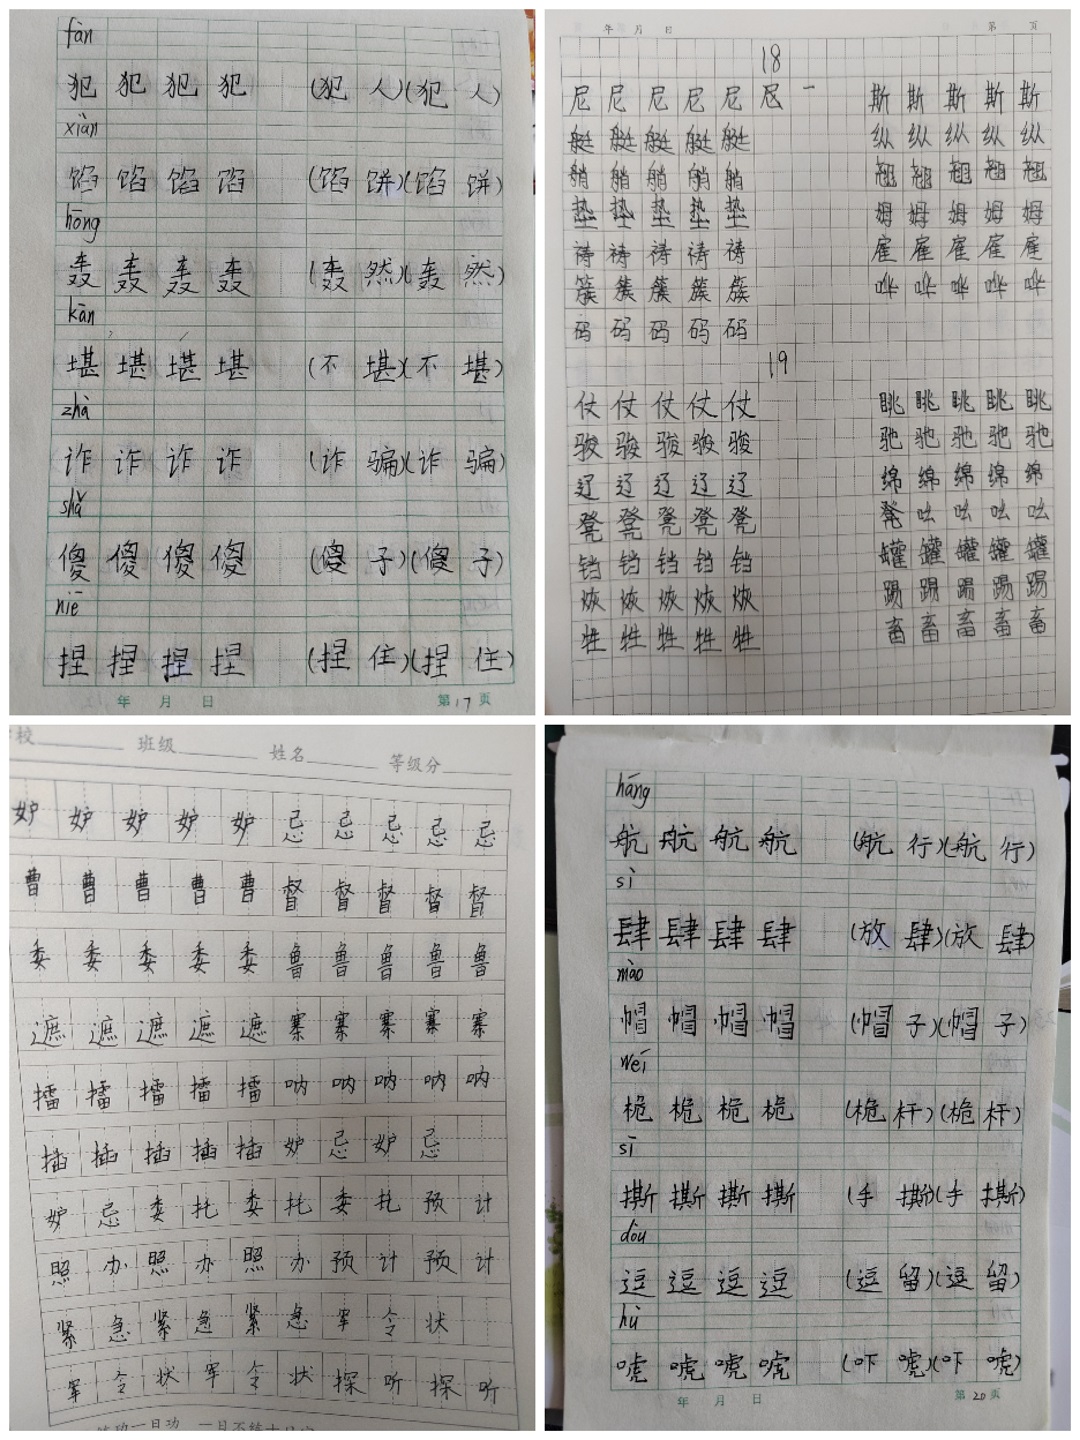 fàn
犯 犯 犯 犯 (犯 人)(犯 人)
xiàn
馅 馅 馅 馅 (馅 饼)(馅 饼)
hōng
轰 轰 轰 轰 (轰 然)(轰 然)
kān
堪 堪 堪 堪 (不 堪)(不 堪)
zhà
诈 诈 诈 诈 (诈 骗)(诈 骗)
shǎ
傻 傻 傻 傻 (傻 子)(傻 子)
niē
捏 捏 捏 捏 (捏 住)(捏 住)
年 月 日 第17页
年 月 日 第 页
18
尼 尼 尼 尼 尼 尼 一 斯 斯 斯 斯 斯
艇 艇 艇 艇 艇 纵 纵 纵 纵 纵
艄 艄 艄 艄 艄 翘 翘 翘 翘 翘
垫 垫 垫 垫 垫 姆 姆 姆 姆 姆
祷 祷 祷 祷 祷 雇 雇 雇 雇 雇
簇 簇 簇 簇 簇 哗 哗 哗 哗 哗
码 码 码 码 码
19
仗 仗 仗 仗 仗 眺 眺 眺 眺 眺
骏 骏 骏 骏 骏 驰 驰 驰 驰 驰
辽 辽 辽 辽 辽 绵 绵 绵 绵 绵
凳 凳 凳 凳 凳 凳 吆 吆 吆 吆
铛 铛 铛 铛 铛 罐 罐 罐 罐 罐
恢 恢 恢 恢 恢 踢 踢 踢 踢 踢
牲 牲 牲 牲 牲 畜 畜 畜 畜 畜
校 班级 姓名 等级分
妒 妒 妒 妒 妒 忌 忌 忌 忌 忌
曹 曹 曹 曹 曹 督 督 督 督 督
委 委 委 委 委 鲁 鲁 鲁 鲁 鲁
遮 遮 遮 遮 遮 寨 寨 寨 寨 寨
擂 擂 擂 擂 擂 呐 呐 呐 呐 呐
插 插 插 插 插 妒 忌 妒 忌
妒 忌 委 托 委 托 委 托 预 计
照 办 照 办 照 办 预 计 预 计
紧 急 紧 急 紧 急 军 令 状
军 令 状 军 令 状 探 听 探 听
háng
航 航 航 航 (航 行)(航 行)
sì
肆 肆 肆 肆 (放 肆)(放 肆)
mào
帽 帽 帽 帽 (帽 子)(帽 子)
wéi
桅 桅 桅 桅 (桅 杆)(桅 杆)
sī
撕 撕 撕 撕 (手 撕)(手 撕)
dòu
逗 逗 逗 逗 (逗 留)(逗 留)
hǔ
唬 唬 唬 唬 (吓 唬)(吓 唬)
年 月 日 第20页